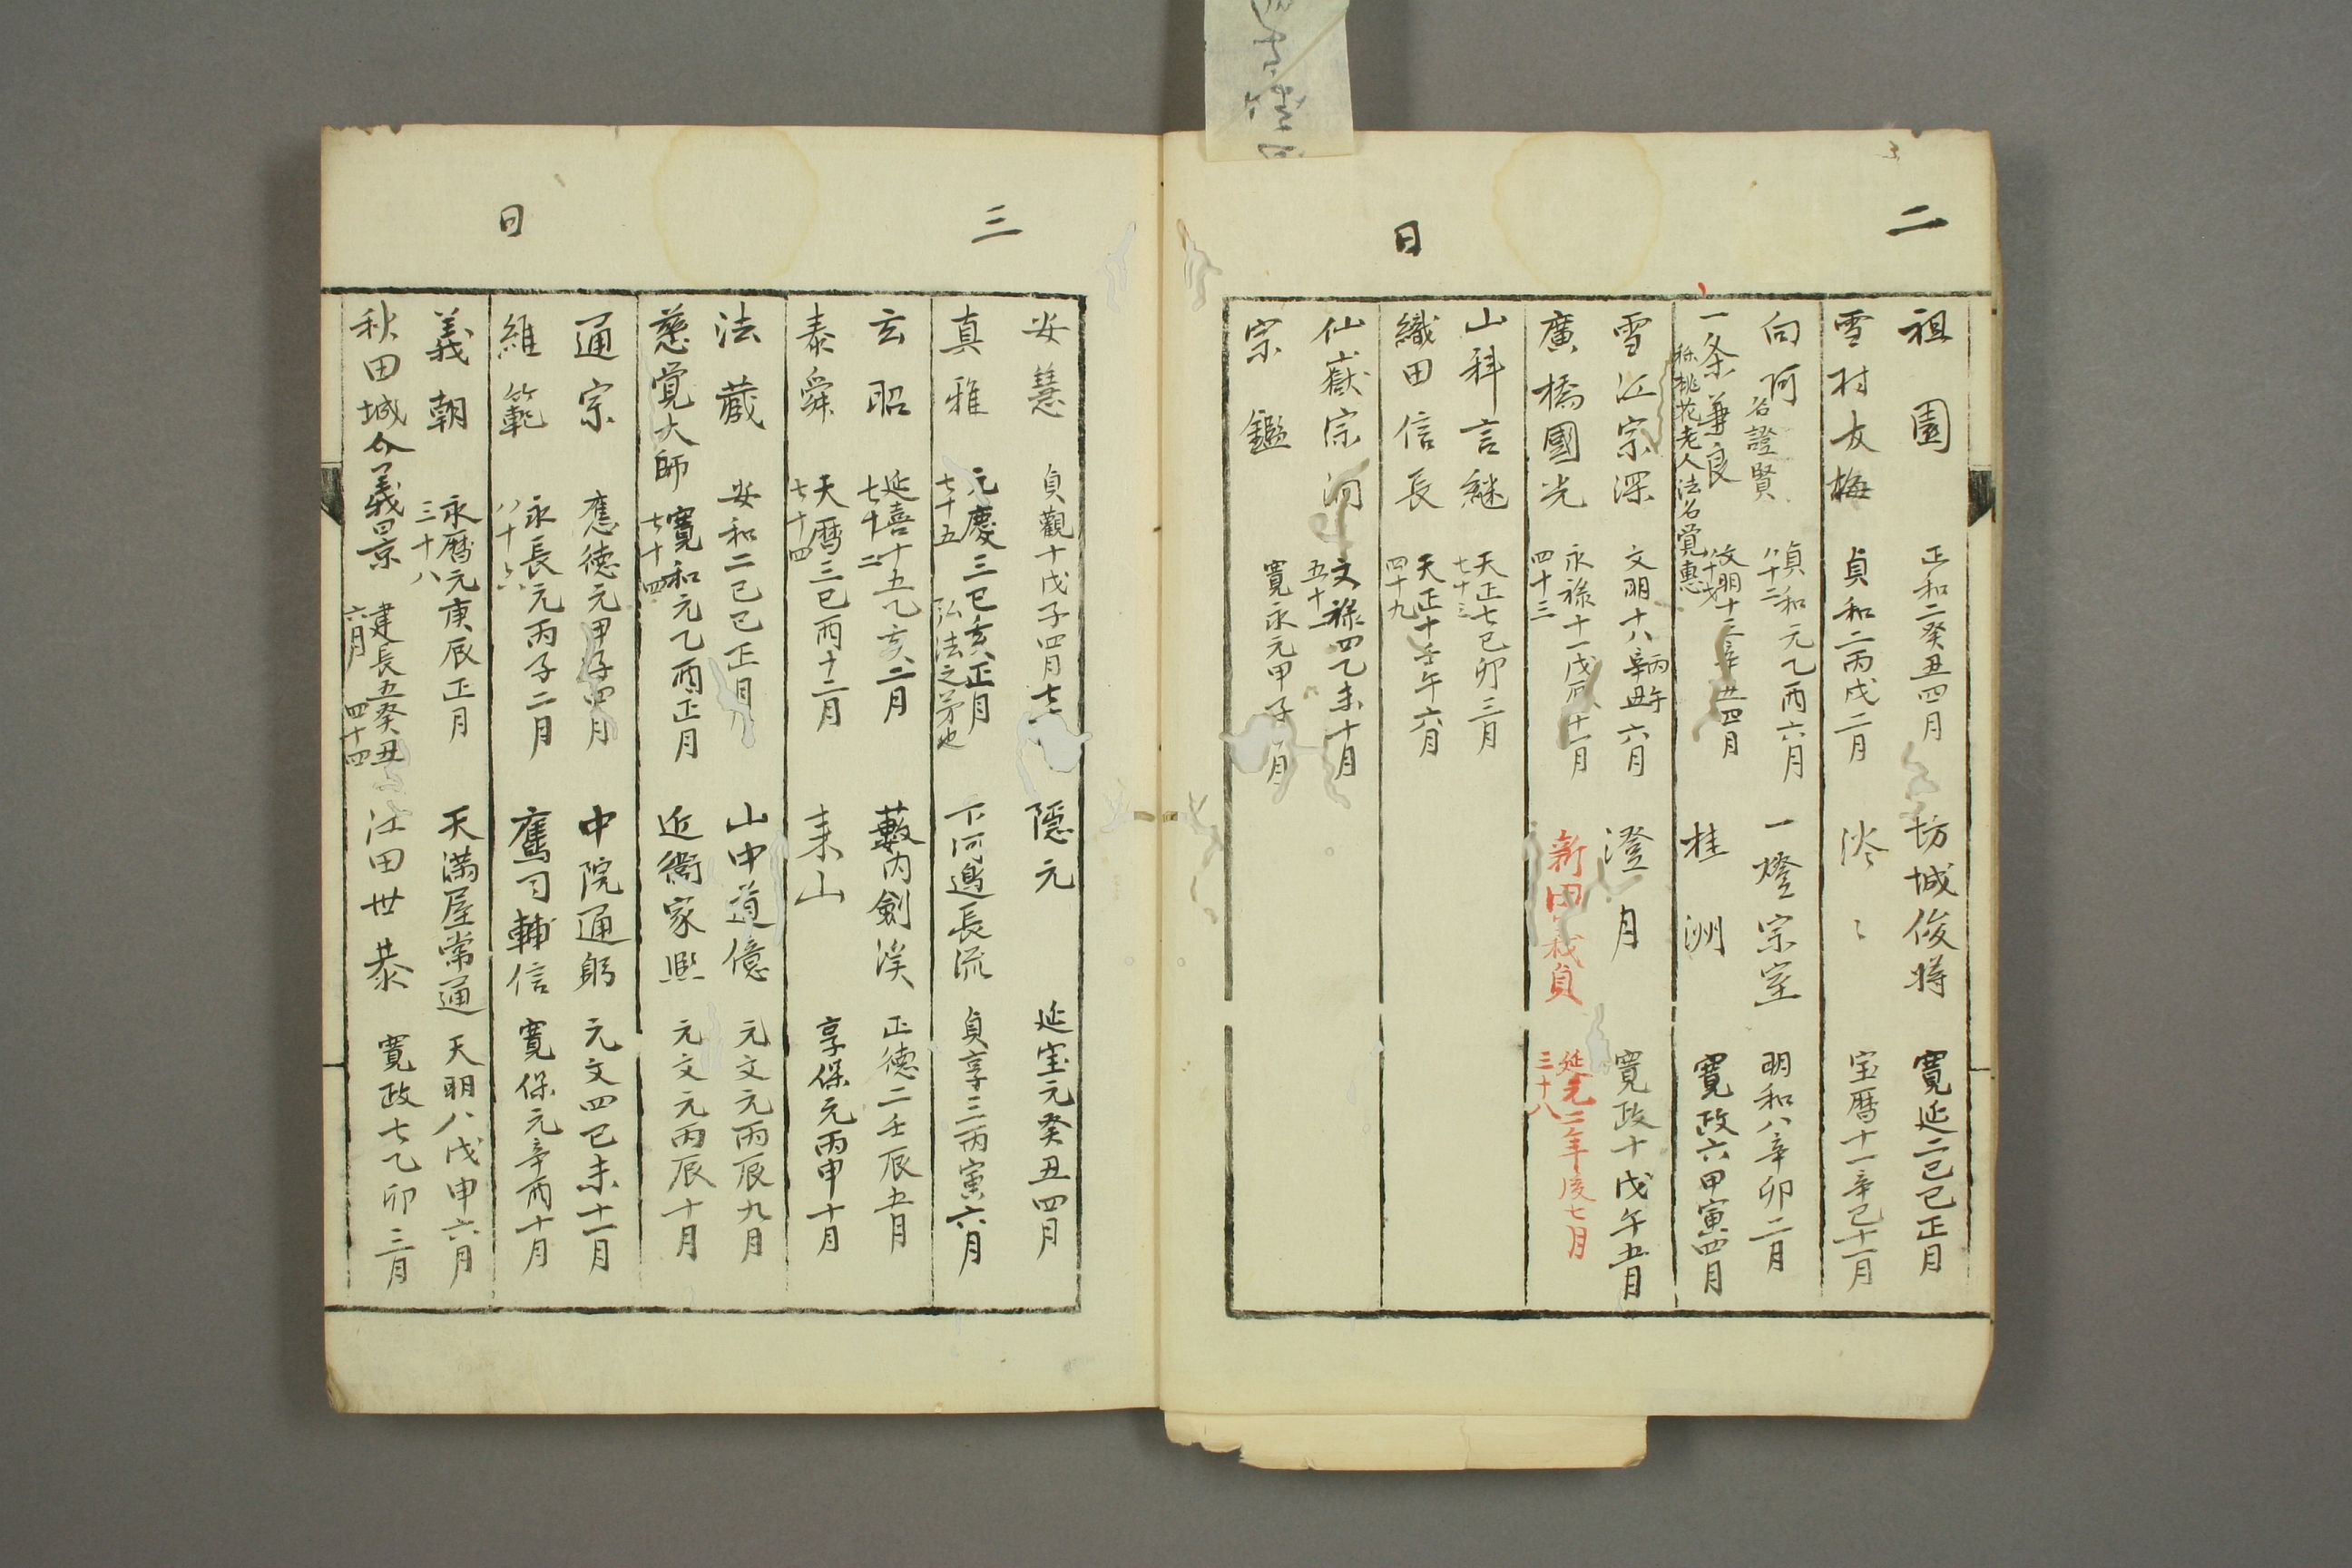 二日
祖園 正和二癸丑四月
坊城俊将 寛延二己巳正月
雪村友梅 貞和二丙戌二月
淡〻 宝暦十一辛巳十一月
向阿 名證賢 貞和元乙酉六月 八十二
一燈宗室 明和八辛卯二月
一条兼良 文明十三辛丑四月
称桃花老人法名覚恵
桂洲 寛政六甲寅四月
雪江宗深 文明十八丙午六月
澄月 寛政十戊午五月
廣橋國光 永禄十一戊辰十一月 四十三
新田義貞 延元二年後七月 三十八
山科言継 天正七己卯三月 七十三
織田信長 天正十壬午六月 四十九
仙嶽宗洞 文禄四乙未十月 五十二
宗鑑 寛永元甲子 月
三日
安慧 貞觀十戊子四月
隠元 延宝元癸丑四月
真雅 元慶三己亥正月 七十五 弘法之弟也
下河邉長流 貞享三丙寅六月
玄昭 延喜十五乙亥二月 七十二
藪内劍渓 正徳二壬辰五月
泰舜 天暦三己酉十二月 七十四
素山 享保元丙申十月
法蔵 安和二己巳正月
山中道億 元文元丙辰九月
慈覚大師 寛和元乙酉正月 七十四
近衞家熈 元文元丙辰十月
通宗 應徳元甲子四月
中院通躬 元文四己未十一月
維範 永長元丙子二月 八十六
鷹司輔信 寛保元辛酉十月
義朝 永暦元庚辰正月 三十八
天満屋常通 天明八戊申六月
秋田城介義景 建長五癸丑六月 四十四
江田世恭 寛政七乙卯三月